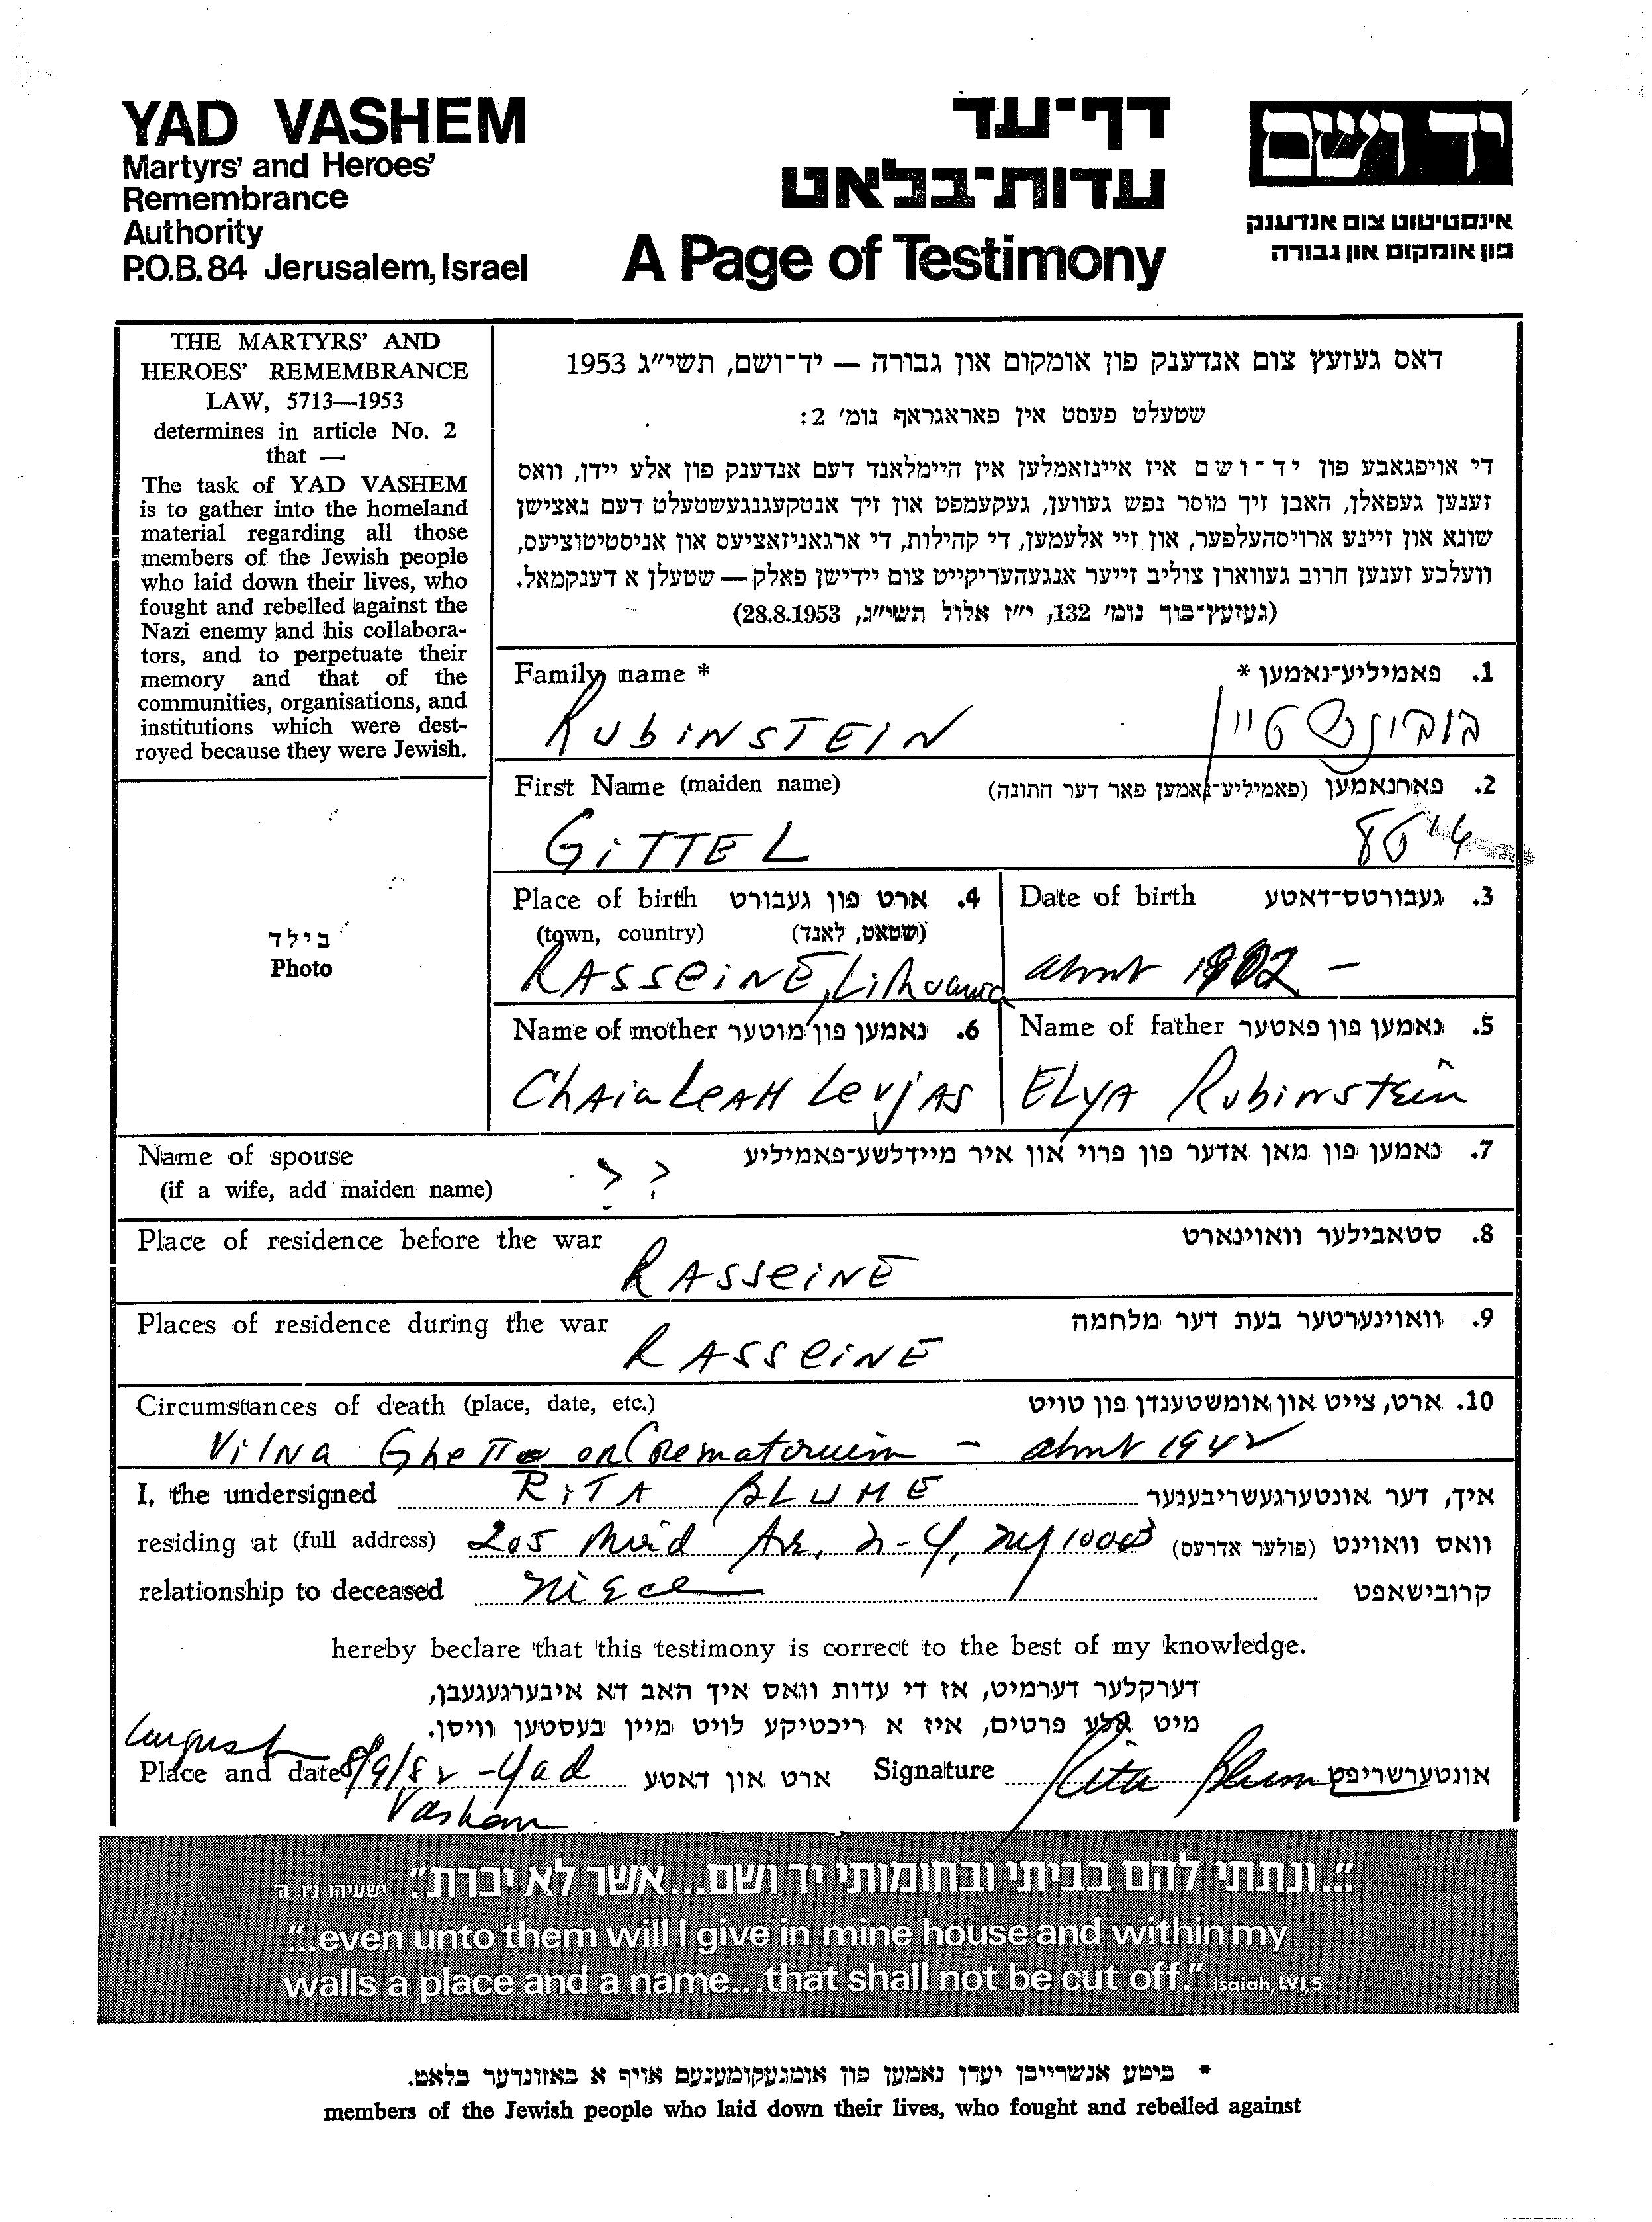 YAD VASHEM
Martyrs' and Heroes'
Remembrance
Authority
P.O.B. 84 Jerusalem, Israel
דף-עד
עדות-בלאט
A Page of Testimony
יד ושם
אינסטיטוט צום אנדענק
פון אומקום און גבורה
THE MARTYRS' AND
HEROES' REMEMBRANCE
LAW, 5713—1953
determines in article No. 2
that —
The task of YAD VASHEM
is to gather into the homeland
material regarding all those
members of the Jewish people
who laid down their lives, who
fought and rebelled against the
Nazi enemy and his collabora-
tors, and to perpetuate their
memory and that of the
communities, organisations, and
institutions which were dest-
royed because they were Jewish.
דאס געזעץ צום אנדענק פון אומקום און גבורה — יד-ושם, תשי״ג 1953
שטעלט פעסט אין פאראגראף נומ׳ 2:
די אויפגאבע פון יד-ושם איז איינזאמלען אין היימלאנד דעם אנדענק פון אלע יידן, וואס
זענען געפאלן, האבן זיך מוסר נפש געווען, געקעמפט און זיך אנטקעגנגעשטעלט דעם נאצישן
שונא און זיינע ארויסהעלפער, און זיי אלעמען, די קהילות, די ארגאניזאציעס און אניסטיטוציעס,
וועלכע זענען חרוב געווארן צוליב זייער אנגעהעריקייט צום יידישן פאלק — שטעלן א דענקמאל.
(געזעץ-בוך נומ׳ 132, י״ז אלול תשי״ג, 28.8.1953)
בילד
Photo
Family name * 1. פאמיליע-נאמען *
RUBINSTEIN רובינשטיין
First Name (maiden name) 2. פארנאמען (פאמיליע-נאמען פאר דער חתונה)
GITTEL גיטל
Place of birth 4. ארט פון געבורט
(town, country) (שטאט, לאנד)
RASSEINE, Lithuania
Date of birth 3. געבורטס-דאטע
about 1902 —
Name of mother 6. נאמען פון מוטער
Chaia LEAH Levjas
Name of father 5. נאמען פון פאטער
ELYA Rubinstein
Name of spouse 7. נאמען פון מאן אדער פון פרוי און איר מיידלשע-פאמיליע
(if a wife, add maiden name) ? ?
Place of residence before the war 8. סטאבילער וואוינארט
RASSEINE
Places of residence during the war 9. וואוינערטער בעת דער מלחמה
RASSEINE
Circumstances of death (place, date, etc.) 10. ארט, צייט און אומשטענדן פון טויט
Vilna Ghetto or Crematorium — about 1942
I, the undersigned RITA BLUME איך, דער אונטערגעשריבענער
residing at (full address) 205 Third Ave, NY 10003 וואס וואוינט (פולער אדרעס)
relationship to deceased Niece קרובישאפט
hereby beclare that this testimony is correct to the best of my knowledge.
דערקלער דערמיט, אז די עדות וואס איך האב דא איבערגעגעבן,
מיט אלע פרטים, איז א ריכטיקע לויט מיין בעסטען וויסן.
August
Place and date 8/9/82 - Yad ארט און דאטע Signature Rita Blume אונטערשריפט
Vashem
"...ונתתי להם בביתי ובחומותי יד ושם...אשר לא יכרת". ישעיהו נ״ו, ה
"...even unto them will I give in mine house and within my
walls a place and a name...that shall not be cut off." Isaiah, LVI, 5
* ביטע אנשרייבן יעדן נאמען פון אומגעקומענעם אויף א באזונדער בלאט.
members of the Jewish people who laid down their lives, who fought and rebelled against